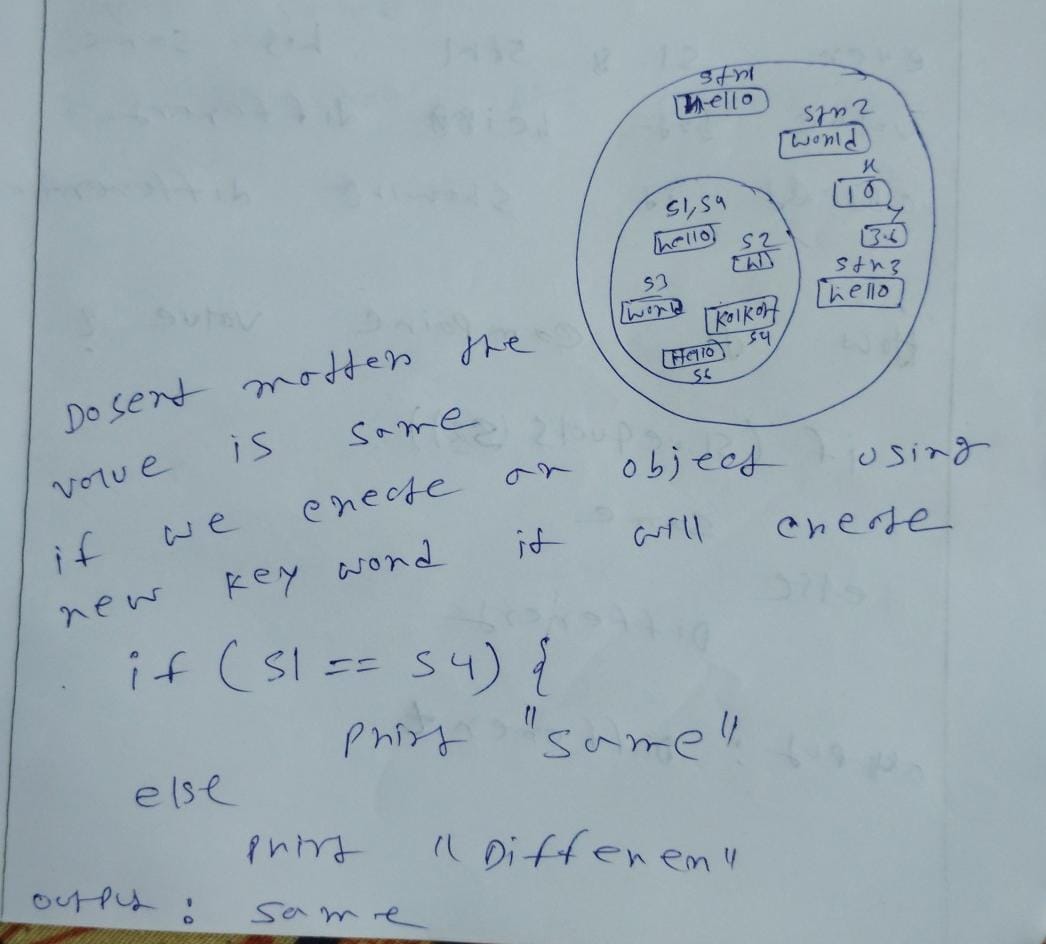 stn1
hello
stn2
world
x
10
y
3.6
stn3
hello
S1, S4
hello
S2
hi
S3
world
S4
Hello
S6
Dosent matter the
value is same
if we create an object using
new key word it will create
if (S1 == S4) {
print "same"
else
print "Differen"
output : same